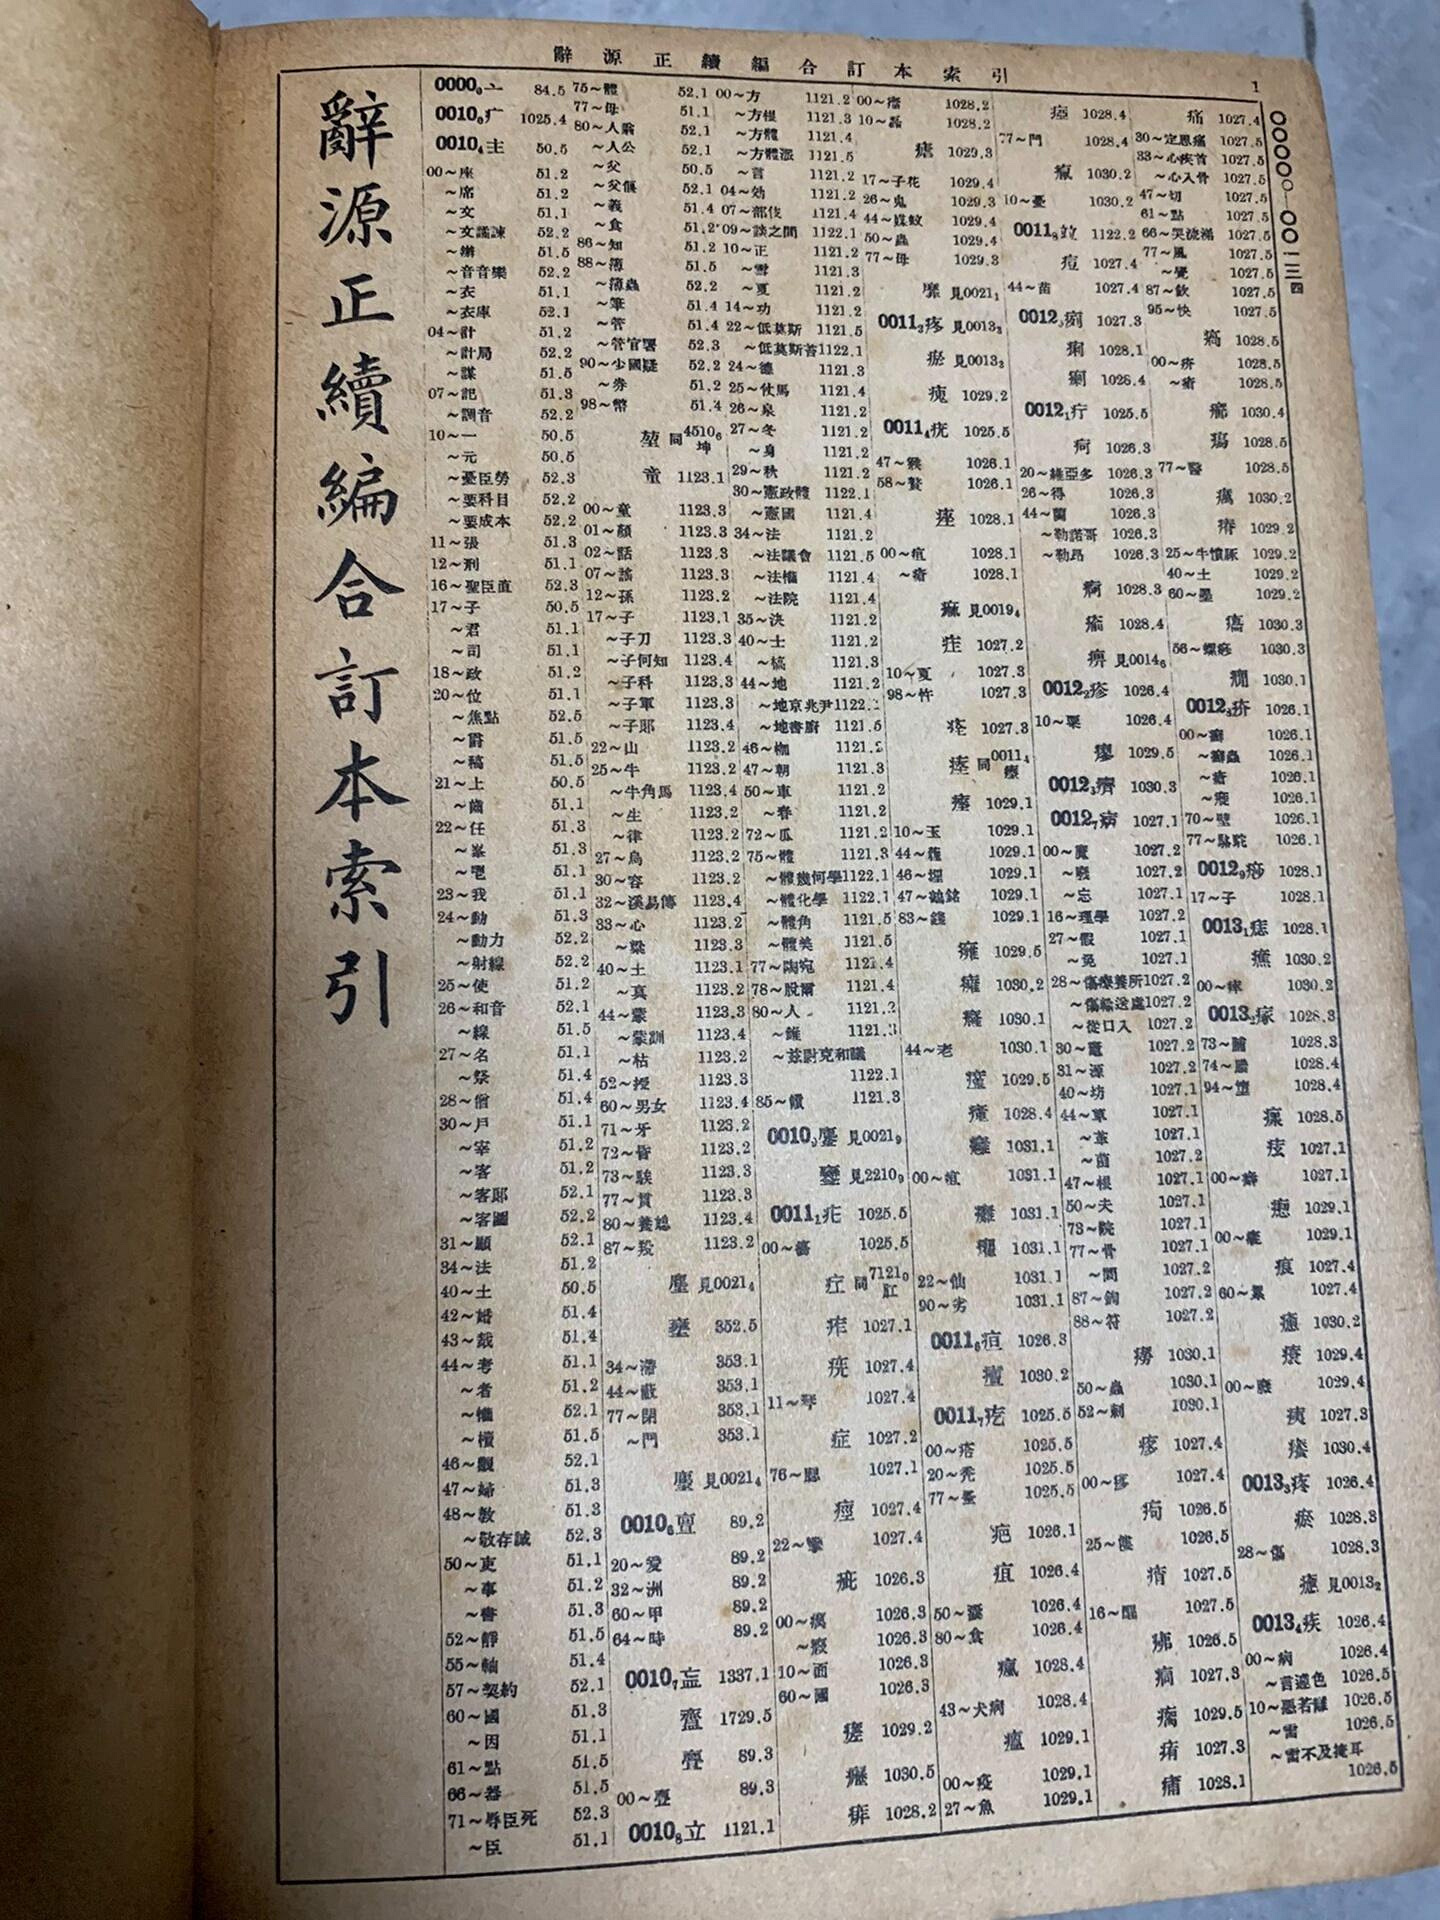 辭源正續編合訂本索引
1
0000₀—0013₄
辭源正續編合訂本索引
0000₀亠 84.5
0010₀疒 1025.4
0010₄主 50.5
00～座 51.2
～席 51.2
～文 51.1
～文譎諫 52.2
～辦 51.5
～音音樂 52.2
～衣 51.1
～衣庫 52.1
04～計 51.2
～計局 52.2
～謀 51.5
07～記 51.3
～調音 52.2
10～一 50.5
～元 50.5
～憂臣勞 52.3
～要科目 52.2
～要成本 52.2
11～張 51.3
12～刑 51.1
16～聖臣直 52.3
17～子 50.5
～君 51.1
～司 51.1
18～政 51.2
20～位 51.1
～焦點 52.5
～爵 51.5
～稿 51.5
21～上 50.5
～齒 51.1
22～任 51.3
～峯 51.3
～鬯 51.1
23～我 51.1
24～動 51.3
～動力 52.2
～射線 52.2
25～使 51.2
26～和音 52.1
～線 51.5
27～名 51.1
～祭 51.4
28～僧 51.4
30～戶 51.1
～宰 51.2
～客 51.2
～客郎 52.1
～客圖 52.2
31～顧 52.1
34～法 51.2
40～土 50.5
42～婚 51.4
43～哉 51.4
44～考 51.1
～者 51.2
～權 52.1
～檟 51.5
46～觀 52.1
47～婦 51.3
48～教 51.3
～敬存誠 52.3
50～吏 51.1
～事 51.2
～書 51.3
52～靜 51.5
55～軸 51.4
57～契約 52.1
60～國 51.3
～因 51.1
61～點 51.5
66～器 51.5
71～辱臣死 52.3
～臣 51.1
75～體 52.1
77～母 51.1
80～人翁 52.1
～人公 52.1
～父 50.5
～父偃 52.1
～義 51.4
～食 51.2
86～知 51.2
88～簿 51.5
～簿蟲 52.2
～筆 51.4
～管 51.4
～管官署 52.3
90～少國疑 52.2
～券 51.2
98～幣 51.4
堃 同4510₆坤
童 1123.1
00～童 1123.3
01～顏 1123.3
02～話 1123.3
07～謠 1123.3
12～孫 1123.2
17～子 1123.1
～子刀 1123.3
～子何知 1123.4
～子科 1123.3
～子軍 1123.3
～子郎 1123.4
22～山 1123.2
25～牛 1123.2
～牛角馬 1123.4
～生 1123.2
～律 1123.2
27～烏 1123.2
30～容 1123.2
32～溪易傳 1123.4
33～心 1123.2
～粱 1123.3
40～土 1123.1
～真 1123.2
44～蒙 1123.3
～蒙訓 1123.4
～枯 1123.2
52～授 1123.3
60～男女 1123.4
71～牙 1123.2
72～昏 1123.2
73～騃 1123.3
77～貫 1123.3
80～養媳 1123.4
87～羖 1123.2
塵 見0021₄
壅 352.5
34～滯 353.1
44～蔽 353.1
77～閉 353.1
～門 353.1
麈 見0021₄
0010₆亶 89.2
20～爰 89.2
32～洲 89.2
60～甲 89.2
64～時 89.2
0010₇盲 1337.1
齏 1729.5
亹 89.3
00～亹 89.3
0010₈立 1121.1
00～方 1121.2
～方根 1121.3
～方體 1121.4
～方體漲 1121.5
～言 1121.2
04～効 1121.2
07～部伎 1121.4
09～談之間 1122.1
10～正 1121.2
～雪 1121.3
～夏 1121.2
14～功 1121.2
22～低莫斯 1121.5
～低莫斯菩 1122.1
24～德 1121.3
25～仗馬 1121.4
26～泉 1121.2
27～冬 1121.2
～身 1121.2
29～秋 1121.2
30～憲政體 1122.1
～憲國 1121.4
34～法 1121.2
～法議會 1121.5
～法權 1121.4
～法院 1121.4
35～決 1121.2
40～士 1121.2
～槁 1121.3
44～地 1121.2
～地京兆尹 1122.1
～地書廚 1121.5
46～枷 1121.2
47～朝 1121.3
50～車 1121.2
～春 1121.2
72～瓜 1121.2
75～體 1121.3
～體幾何學 1122.1
～體化學 1122.1
～體角 1121.5
～體美 1121.5
77～陶宛 1121.4
78～脫爾 1121.4
80～人 1121.2
～錐 1121.3
～茲尉克和議 1122.1
85～饋 1121.3
0010₉鏖 見0021₉
鑾 見2210₉
0011₁疕 1025.5
00～瘍 1025.5
疘 同7121₀肛
痄 1027.1
㾌 1027.4
11～琴 1027.4
症 1027.2
76～腮 1027.1
痙 1027.4
22～攣 1027.4
疵 1026.3
00～癘 1026.3
～瘕 1026.3
10～面 1026.3
60～國 1026.3
瘥 1029.2
癧 1030.5
痱 1028.2
00～癗 1028.2
10～磊 1028.2
瘧 1029.3
17～子花 1029.4
26～鬼 1029.3
44～媒蚊 1029.4
50～蟲 1029.4
77～母 1029.3
糜 見0021₁
0011₃疼 見0013₃
瘀 見0013₃
瘐 1029.2
0011₄疣 1025.5
47～鬷 1026.1
58～贅 1026.1
痤 1028.1
00～疽 1028.1
～瘡 1028.1
痲 見0019₄
疰 1027.2
10～夏 1027.3
98～忤 1027.3
痊 1027.3
瘞 1029.1
10～玉 1029.1
44～薶 1029.1
46～埋 1029.1
47～鶴銘 1029.1
83～錢 1029.1
瘫 1029.5
癯 1030.2
癃 1030.1
44～老 1030.1
瘽 1029.5
瘴 1028.4
癰 1031.1
00～疽 1031.1
癱 1031.1
癯 1031.1
22～仙 1031.1
90～劣 1031.1
0011₆疸 1026.3
癉 1030.2
0011₇疙 1025.5
00～瘩 1025.5
20～禿 1025.5
77～蚤 1025.5
疤 1026.1
疽 1026.4
50～蠱 1026.4
80～食 1026.4
瘋 1028.4
43～犬病 1028.4
瘟 1029.1
00～疫 1029.1
27～魚 1029.1
瘂 1028.4
77～門 1028.4
癙 1030.2
10～憂 1030.2
0011₈竝 1122.2
痘 1027.4
44～苗 1027.4
0012₀痢 1027.3
痢 1028.1
瘌 1028.4
0012₁疔 1025.5
疴 1026.3
20～維亞多 1026.3
26～得 1026.3
44～蘭 1026.3
～勒諾哥 1026.3
～勒昂 1026.3
痾 1028.3
瘸 1028.4
痹 見0014₆
0012₂疹 1026.4
10～粟 1026.4
瘳 1029.5
0012₃癠 1030.3
0012₇病 1027.1
00～魔 1027.2
～廢 1027.2
～忘 1027.1
16～理學 1027.2
27～假 1027.1
～免 1027.1
28～傷療養所 1027.2
～傷輸送處 1027.2
～從口入 1027.2
30～竈 1027.2
31～源 1027.2
40～坊 1027.1
44～草 1027.1
～革 1027.1
～菌 1027.2
47～根 1027.1
50～夫 1027.1
73～院 1027.1
77～骨 1027.1
～間 1027.2
87～鉤 1027.2
88～符 1027.2
癆 1030.1
50～蟲 1030.1
52～刺 1030.1
痧 1027.4
00～疹 1027.4
疴 1026.5
25～僂 1026.5
痟 1027.5
16～醒 1027.5
疿 1026.5
痌 1027.3
瘺 1029.5
痏 1027.3
痡 1028.1
痛 1027.4
30～定思痛 1027.5
33～心疾首 1027.5
～心入骨 1027.5
47～切 1027.5
61～點 1027.5
66～哭流涕 1027.5
77～風 1027.5
～覺 1027.5
87～飲 1027.5
95～快 1027.5
瘍 1028.5
00～疥 1028.5
～瘡 1028.5
癤 1030.4
瘍 1028.5
77～醫 1028.5
癘 1030.2
瘠 1029.2
25～牛僨豚 1029.2
40～土 1029.2
60～墨 1029.2
癟 1030.3
56～螺痧 1030.3
癇 1030.1
0012₈疥 1026.1
00～癬 1026.1
～癬蟲 1026.1
～瘡 1026.1
～癢 1026.1
70～壁 1026.1
77～駱駝 1026.1
0012₉痧 1028.1
17～子 1028.1
0013₁痣 1028.1
癄 1030.2
00～瘁 1030.2
0013₂瘃 1028.3
73～膚 1028.3
74～墮 1028.4
94～墮 1028.4
瘝 1028.5
痃 1027.1
00～癖 1027.1
瘛 1029.1
00～瘲 1029.1
痕 1027.4
60～累 1027.4
癒 1030.2
瘝 1029.4
00～廢 1029.4
痍 1027.3
癢 1030.4
0013₃疼 1026.4
瘀 1028.3
28～傷 1028.3
瘱 見0013₂
0013₄疾 1026.4
00～病 1026.4
～言遽色 1026.5
10～惡若讎 1026.5
～雷 1026.5
～雷不及掩耳 1026.5